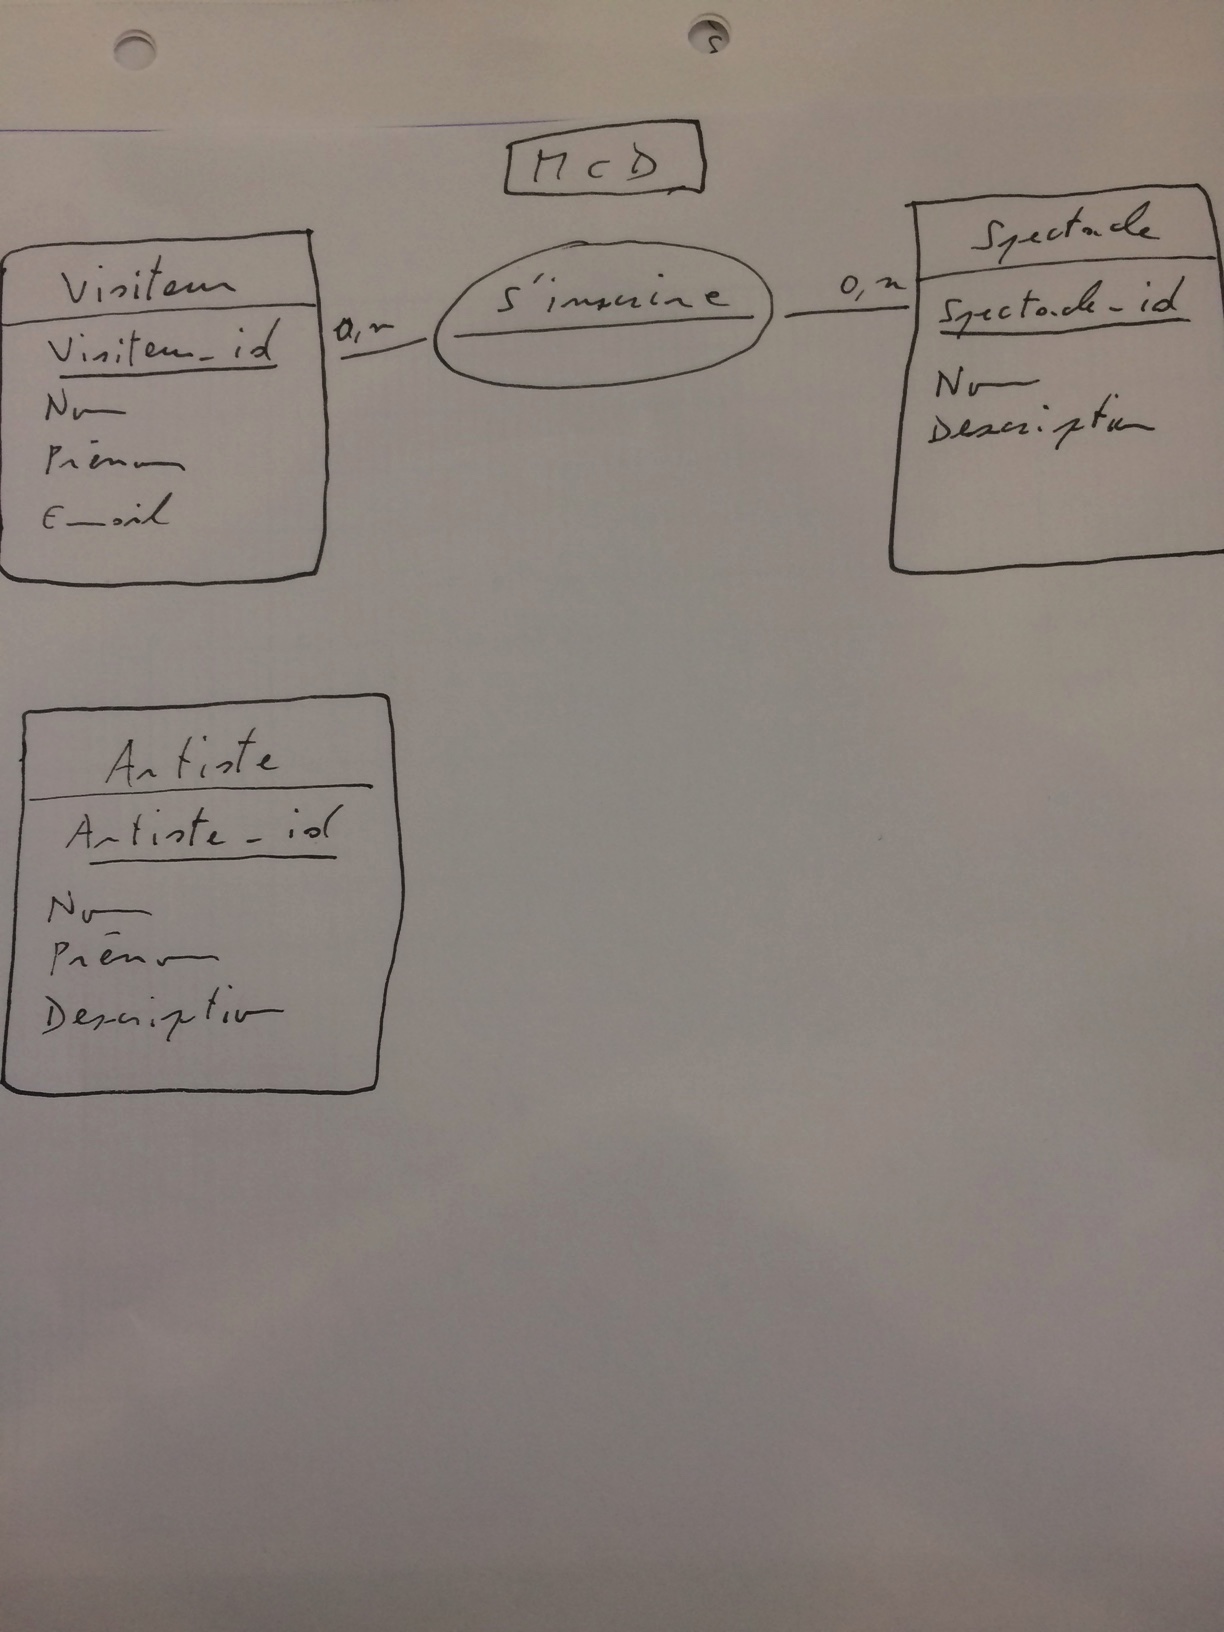 MCD
Visiteur
Visiteur_id
Nom
Prénom
Email
0,n
S'inscrire
0,n
Spectacle
Spectacle_id
Nom
Description
Artiste
Artiste_id
Nom
Prénom
Description